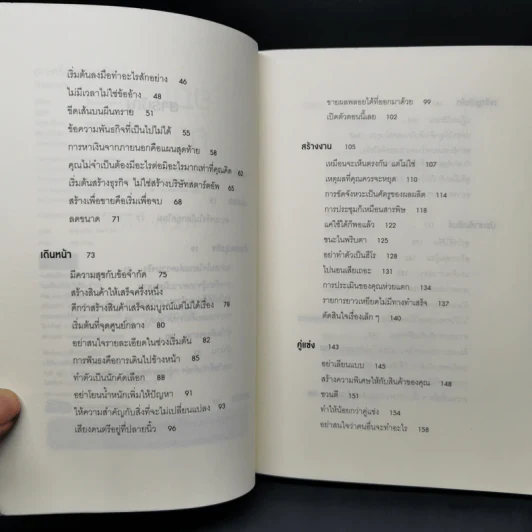 เริ่มต้นลงมือทำอะไรสักอย่าง 46
ไม่มีเวลาไม่ใช่ข้ออ้าง 48
ขีดเส้นบนผืนทราย 51
ข้อความพันธกิจที่เป็นไปไม่ได้ 55
การหาเงินจากภายนอกคือแผนสุดท้าย 58
คุณไม่จำเป็นต้องมีอะไรต่อมิอะไรมากเท่าที่คุณคิด 62
เริ่มต้นสร้างธุรกิจ ไม่ใช่สร้างบริษัทสตาร์ตอัพ 65
สร้างเพื่อขายคือเริ่มเพื่อจบ 68
ลดขนาด 71
เดินหน้า 73
มีความสุขกับข้อจำกัด 75
สร้างสินค้าให้เสร็จครึ่งหนึ่ง
ดีกว่าสร้างสินค้าเสร็จสมบูรณ์แต่ไม่ได้เรื่อง 78
เริ่มต้นที่จุดศูนย์กลาง 80
อย่าสนใจรายละเอียดในช่วงเริ่มต้น 83
การฟันธงคือการเดินไปข้างหน้า 85
ทำตัวเป็นนักคัดเลือก 88
อย่าโยนน้ำหนักเพิ่มให้ปัญหา 91
ให้ความสำคัญกับสิ่งที่จะไม่เปลี่ยนแปลง 93
เสียงดนตรีอยู่ที่ปลายนิ้ว 96
ขายผลพลอยได้ที่ออกมาด้วย 99
เปิดตัวตอนนี้เลย 102
สร้างงาน 105
เหมือนจะเห็นตรงกัน แต่ไม่ใช่ 107
เหตุผลที่คุณควรจะหยุด 110
การขัดจังหวะเป็นศัตรูของผลผลิต 114
การประชุมก็เหมือนสารพิษ 118
แค่ใช้ได้ก็พอแล้ว 122
ชนะในพริบตา 125
อย่าทำตัวเป็นฮีโร่ 128
ไปนอนเสียเถอะ 131
การประเมินของคุณห่วยแตก 134
รายการยาวเหยียดไม่มีทางทำสำเร็จ 137
ตัดสินใจเรื่องเล็ก ๆ 140
คู่แข่ง 143
อย่าเลียนแบบ 145
สร้างความพิเศษให้กับสินค้าของคุณ 148
ชวนตี 151
ทำให้น้อยกว่าคู่แข่ง 154
อย่าสนใจว่าคนอื่นจะทำอะไร 158